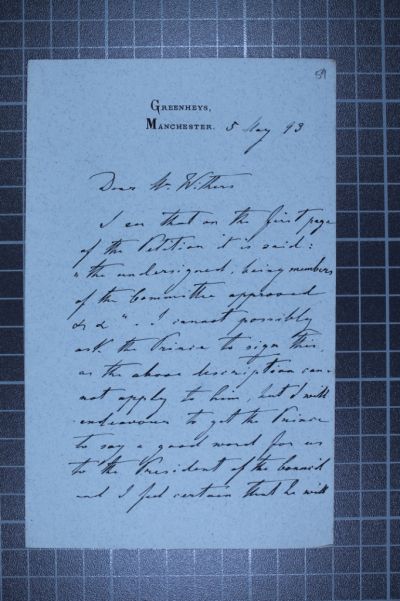 59
GREENHEYS,
MANCHESTER. 5 May 93
Dear Mr. Withers
I see that on the first page
of the Petition it is said:
"the undersigned, being members
of the Committee approved
&c &c" - I cannot possibly
ask the Prince to sign this,
as the above description can=
not apply to him, but I will
endeavour to get the Prince
to say a good word for us
to the President of the Council
and I feel certain that he will